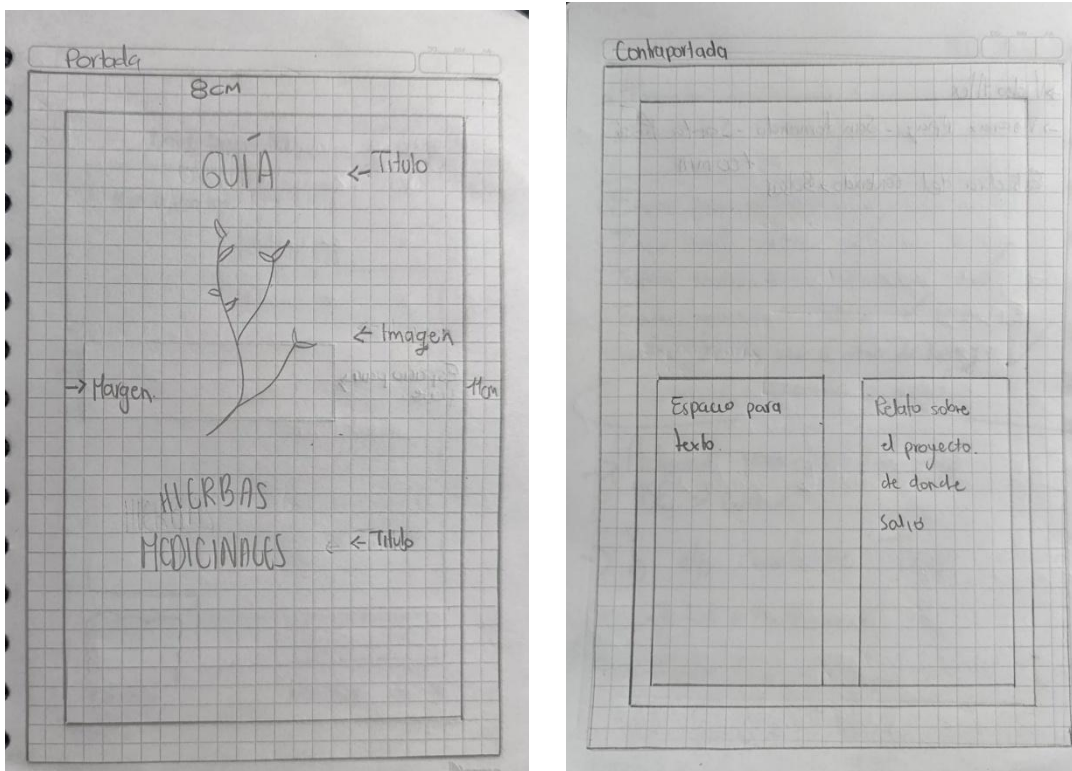 Portada
8cm
GUÍA
← Titulo
← Imagen
→ Margen.
11cm
HIERBAS
MEDICINALES
← Titulo
Contraportada
Espacio para
texto.
Relato sobre
el proyecto.
de donde
salió